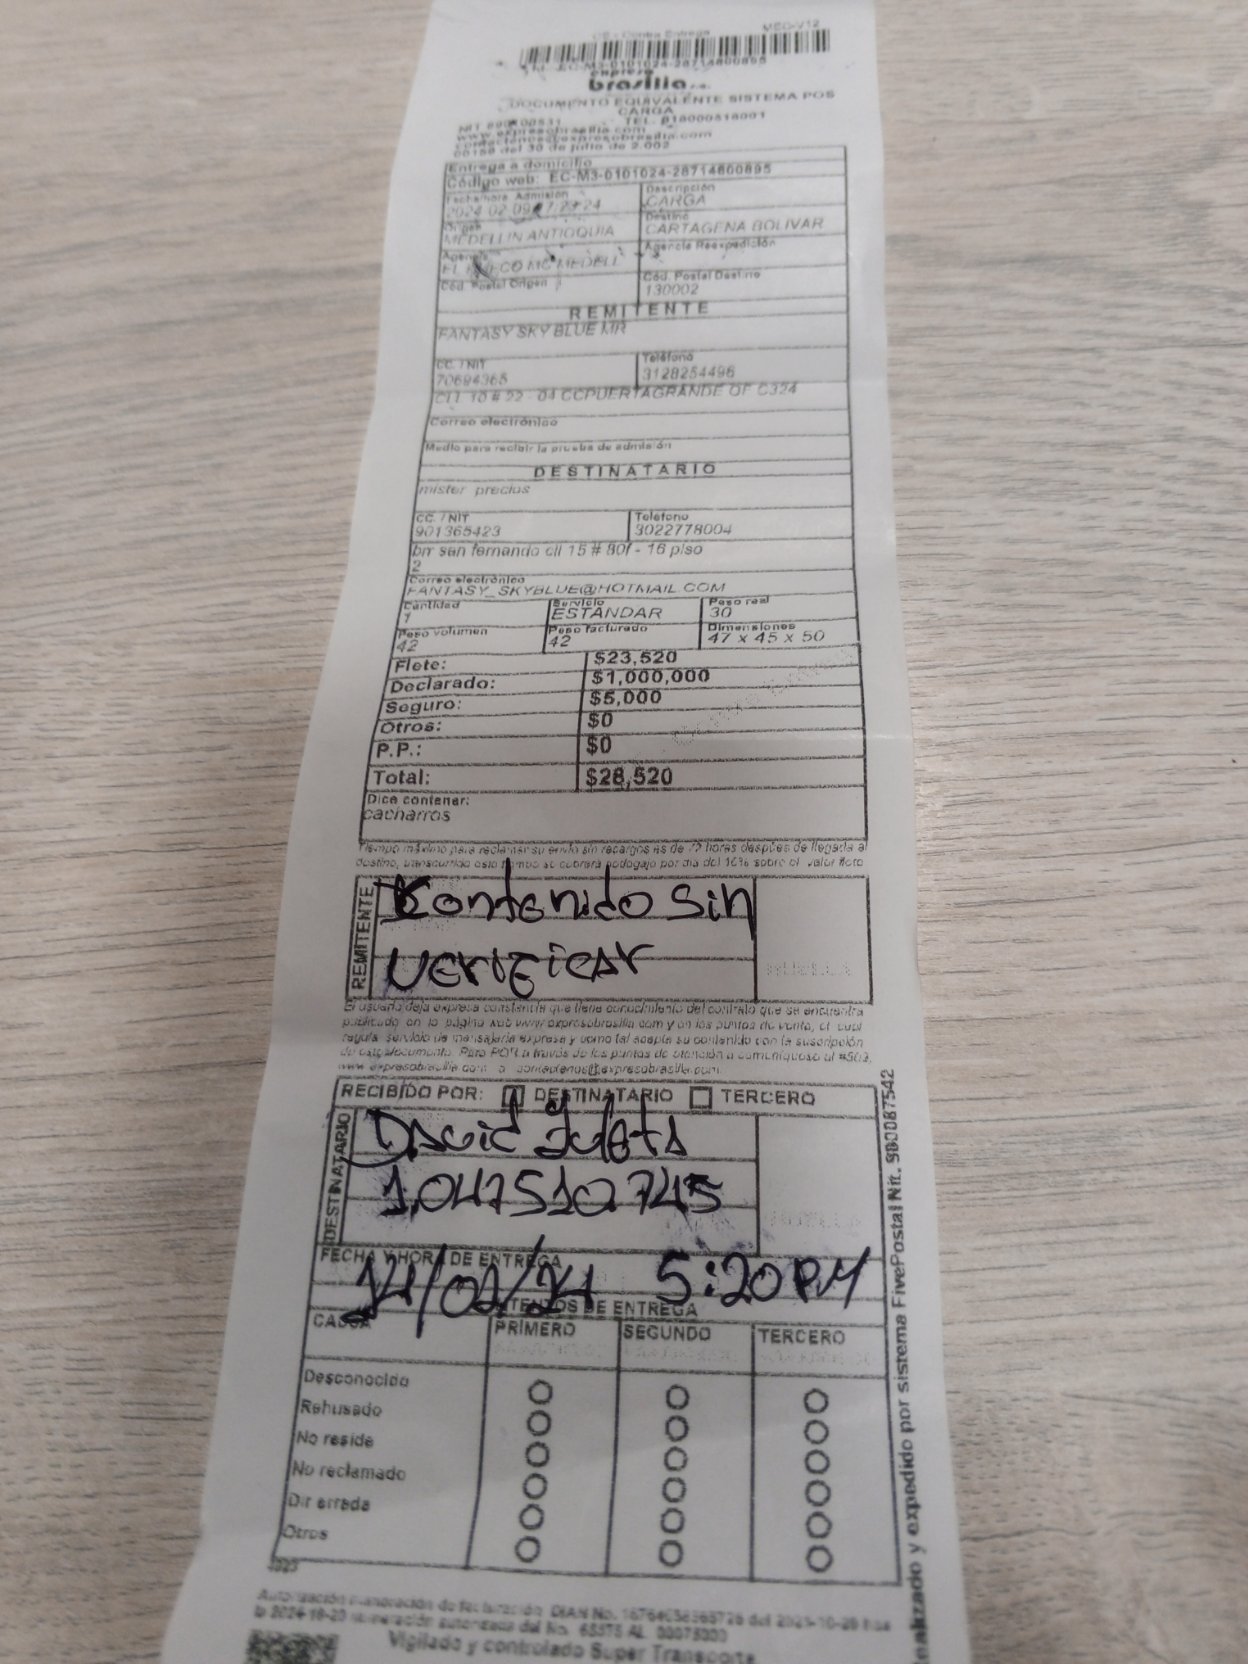 CE - Contra Entrega MEC-V12
EC-M3-0101024-28714600895
expreso
brasilia s.a.
DOCUMENTO EQUIVALENTE SISTEMA POS
CARGA
NIT 890100531 TEL. 018000518001
www.expresobrasilia.com
contactenos@expresobrasilia.com
00158 del 30 de julio de 2.002
Entrega a domicilio
Código web: EC-M3-0101024-28714600895
Fecha/hora Admisión Descripción
2024-02-09 CARGA
Origen Destino
MEDELLIN ANTIOQUIA CARTAGENA BOLIVAR
Agencia Agencia Reexpedición
EL MC MEDELL
Cód. Postal Origen Cód. Postal Destino
130002
REMITENTE
FANTASY SKY BLUE MR
CC. / NIT Teléfono
70694365 3128254496
CLL 10 # 22 - 04 CCPUERTAGRANDE OF C324
Correo electrónico
Medio para recibir la prueba de admisión
DESTINATARIO
mister precios
CC. / NIT Teléfono
901365423 3022778004
brr san fernando cll 15 # 80f - 16 piso
2
Correo electrónico
FANTASY_SKYBLUE@HOTMAIL.COM
Cantidad Servicio Peso real
1 ESTANDAR 30
Peso volumen Peso facturado Dimensiones
42 42 47 x 45 x 50
Flete: $23,520
Declarado: $1,000,000
Seguro: $5,000
Otros: $0
P.P.: $0
Total: $28,520
Dice contener:
cacharros
Tiempo máximo para reclamar su envío sin recargos es de 72 horas después de llegada al
destino, transcurrido este tiempo se cobrará bodegaje por día del 10% sobre el valor flete
REMITENTE
Contenido sin
verificar
El usuario deja expresa constancia que tiene conocimiento del contrato que se encuentra
publicado en la página web www.expresobrasilia.com y en los puntos de venta, el cual
regula servicio de mensajería expresa y como tal acepta su contenido con la suscripción
de este documento. Para PQR a través de los puntos de atención o comuníquese al #502,
www.expresobrasilia.com o contactenos@expresobrasilia.com.
RECIBIDO POR: DESTINATARIO TERCERO
DESTINATARIO
David Zuleta
1.047510.745
FECHA Y HORA DE ENTREGA
14/02/24 5:20 PM
INTENTOS DE ENTREGA
CAUSA PRIMERO SEGUNDO TERCERO
Desconocido
Rehusado
No reside
No reclamado
Dir errada
Otros
Autorización numeración de facturación DIAN No. del 2023-10-20 has
Vigilado y controlado Super Transporte
realizado y expedido por sistema FivePostal Nit. 900087542